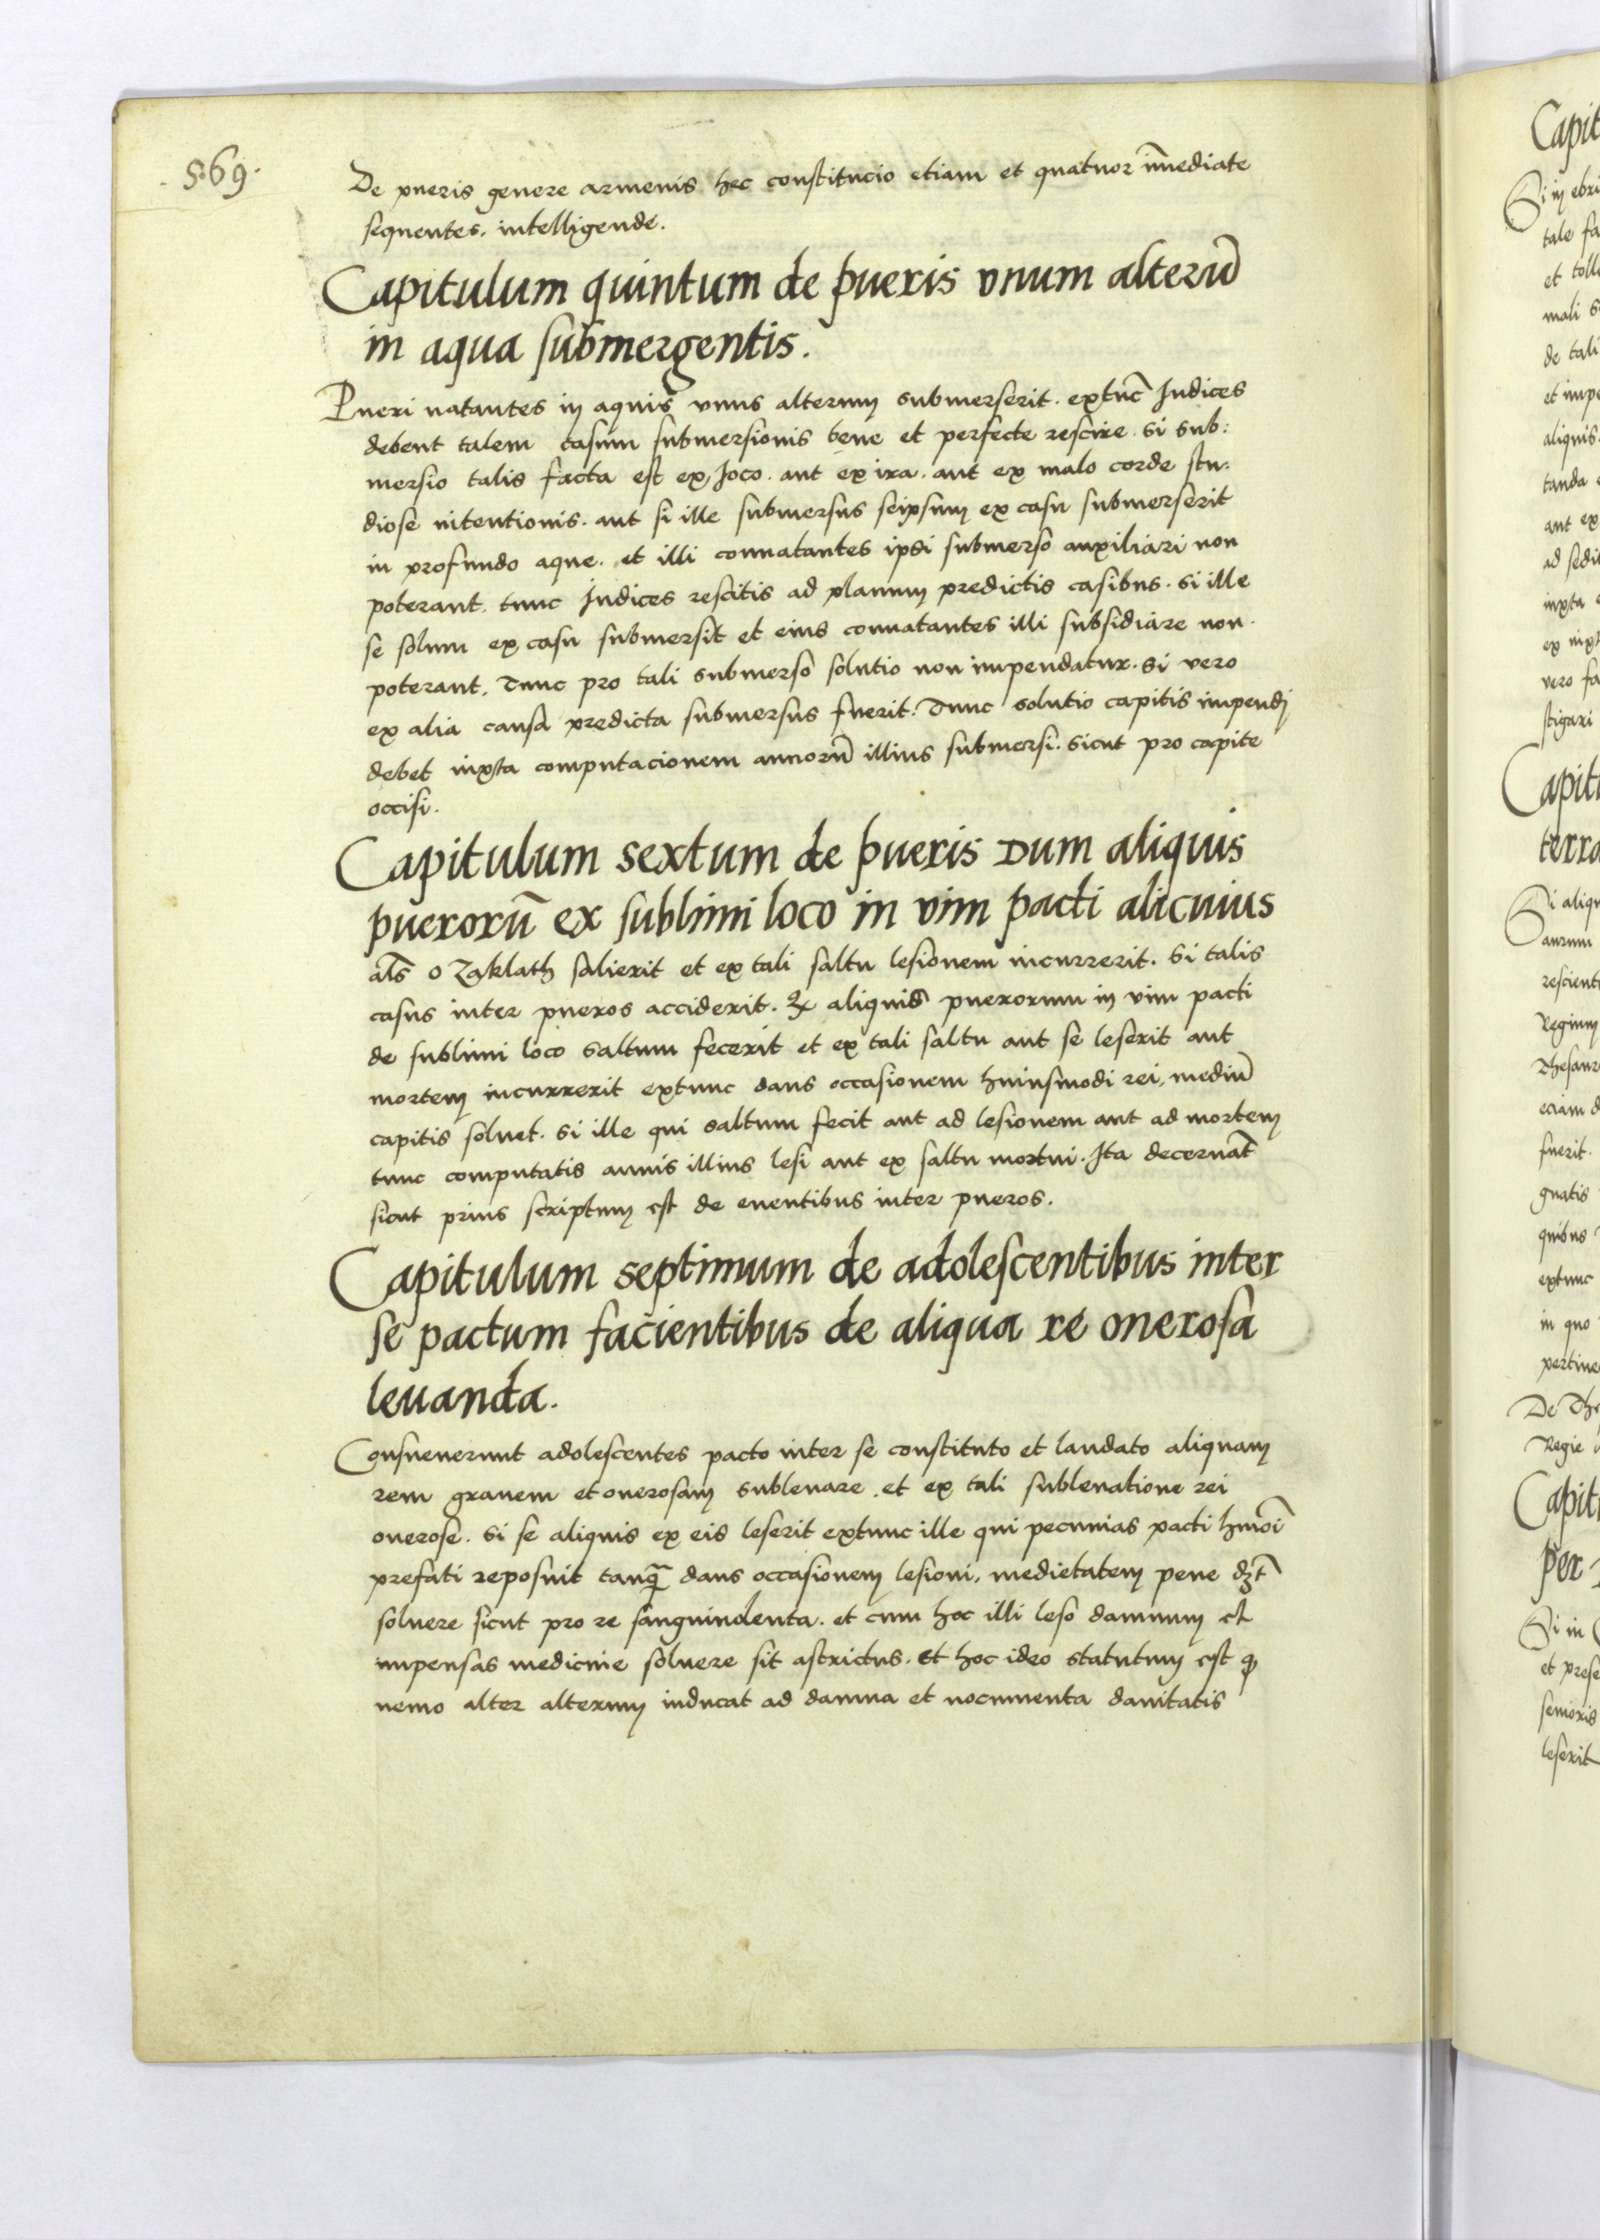 569.
De pueris genere armenis hec constitucio etiam et quatuor īmediate
sequentes. intelligende.
Capitulum quintum de pueris vnum alterū
in aqua submergentis.
Pueri natantes in aquis vnus alterum submerserit. extūc Iudices
debent talem casum submersionis bene et perfecte rescire. si sub:
mersio talis facta est ex Ioco. aut ex ira. aut ex malo corde stu:
diose intentionis. aut si ille submersus seipsum ex casu submerserit
in profundo aque. et illi connatantes ipsi submerso auxiliari non
poterant. tunc Iudices rescitis ad planum predictis casibus. si ille
se solum ex casu submersit et eius connatantes illi subsidiare non
poterant. Tunc pro tali submerso solutio non impendatur. si vero
ex alia causa predicta submersus fuerit. Tunc solutio capitis impendi
debet iuxta computacionem annorū illius submersi. sicut pro capite
occisi.
Capitulum sextum de pueris Dum aliquis
puerorū ex sublimi loco in vim pacti alicuius
al̄s o Zaklath salierit et ex tali saltu lesionem incurrerit. si talis
casus inter pueros acciderit. ꝙ aliquis puerorum in vim pacti
de sublimi loco saltum fecerit et ex tali saltu aut se leserit aut
mortem incurrerit extunc dans occasionem huiusmodi rei, mediū
capitis soluet. si ille qui saltum fecit aut ad lesionem aut ad mortem
tunc computatis annis illius lesi aut ex saltu mortui. Ita decernat̄
sicut prius scriptum est de euentibus inter pueros.
Capitulum septimum de adolescentibus inter
se pactum facientibus de aliqua re onerosa
leuanda.
Consueuerunt adolescentes pacto inter se constituto et laudato aliquam
rem grauem et onerosam subleuare. et ex tali subleuatione rei
onerose. si se aliquis ex eis leserit extunc ille qui pecunias pacti hmōi
prefati reposuit tanq̄ dans occasionem lesioni, medietatem pene dꝫt̄
soluere sicut pro re sanguinolenta. et cum hoc illi leso damnum et
impensas medicine soluere sit astrictus. et hoc ideo statutum est ꝙ
nemo alter alterum inducat ad damna et nocumenta vanitatis